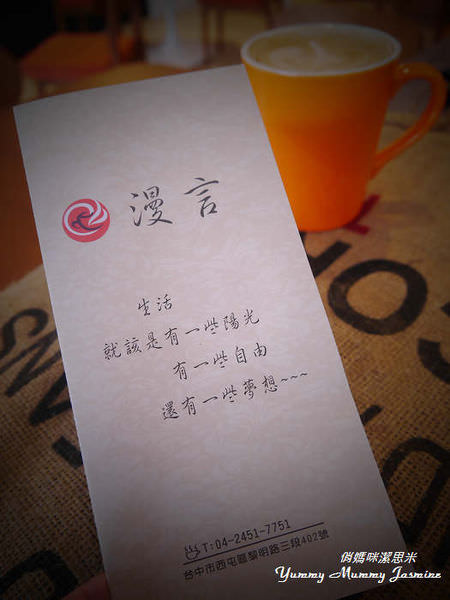 漫言
生活
就該是有一些陽光
有一些自由
還有一些夢想~~~
T:04-2451-7751
台中市西屯區黎明路三段402號
俏媽咪潔思米
Yummy Mummy Jasmine